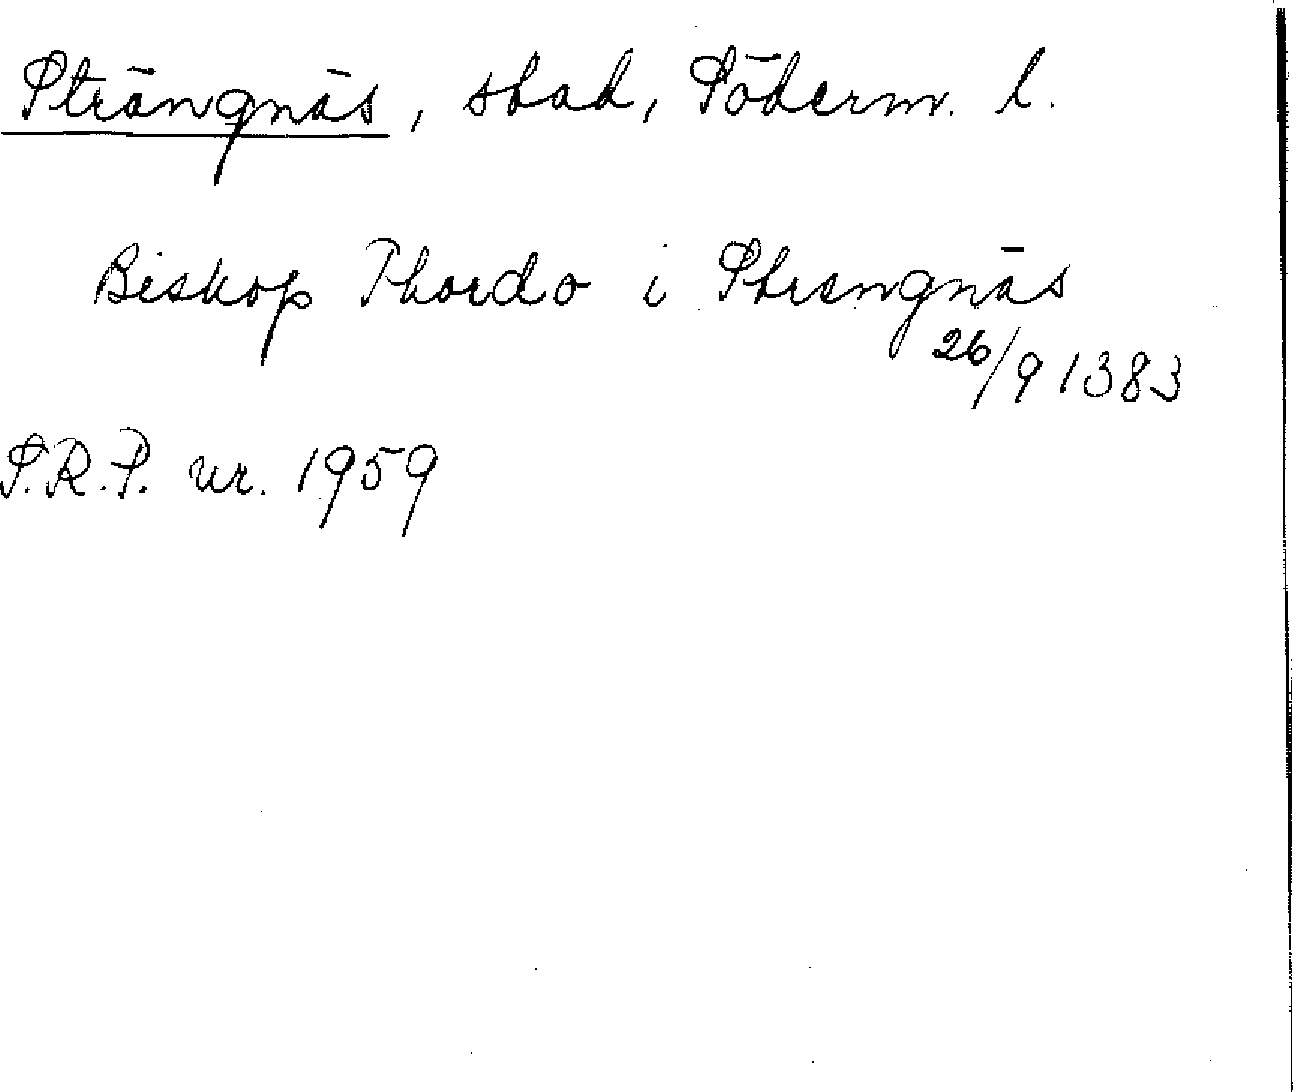 Strängnäs, stad, Söderm. l.
Biskop Thordo i Strengnäs
26/9 1383
S.R.P. nr. 1959